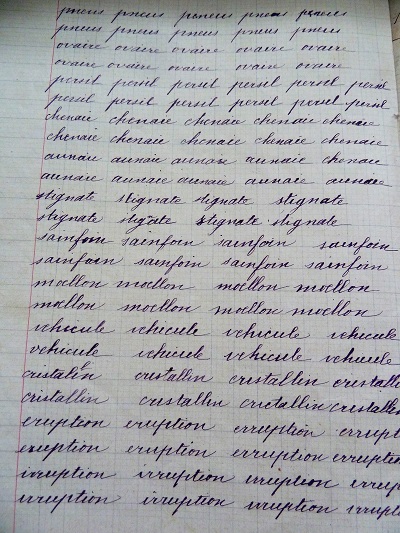 pneus pneus pneus pneus pneus
pneus pneus pneus pneus pneus
ovaire ovaire ovaire ovaire ovaire
ovaire ovaire ovaire ovaire ovaire
persil persil persil persil persil persil
persil persil persil persil persil persil
chenaie chenaie chenaie chenaie chenaie
chenaie chenaie chenaie chenaie chenaie
aunaie aunaie aunaie aunaie chenaie
aunaie aunaie aunaie aunaie aunaie
stignate stignate stignate stignate
stignate stignate stignate stignate
sainfoin sainfoin sainfoin sainfoin
sainfoin sainfoin sainfoin sainfoin
moellon moellon moellon moellon
moellon moellon moellon moellon
vehicule vehicule vehicule vehicule
vehicule vehicule vehicule vehicule
cristalin cristallin cristallin cristalli
cristallin cristallin cristallin cristallin
eruption eruption erruption errupt
eruption eruption erruption erruption
irruption irruption irruption irrup
irruption irruption irruption irrupt